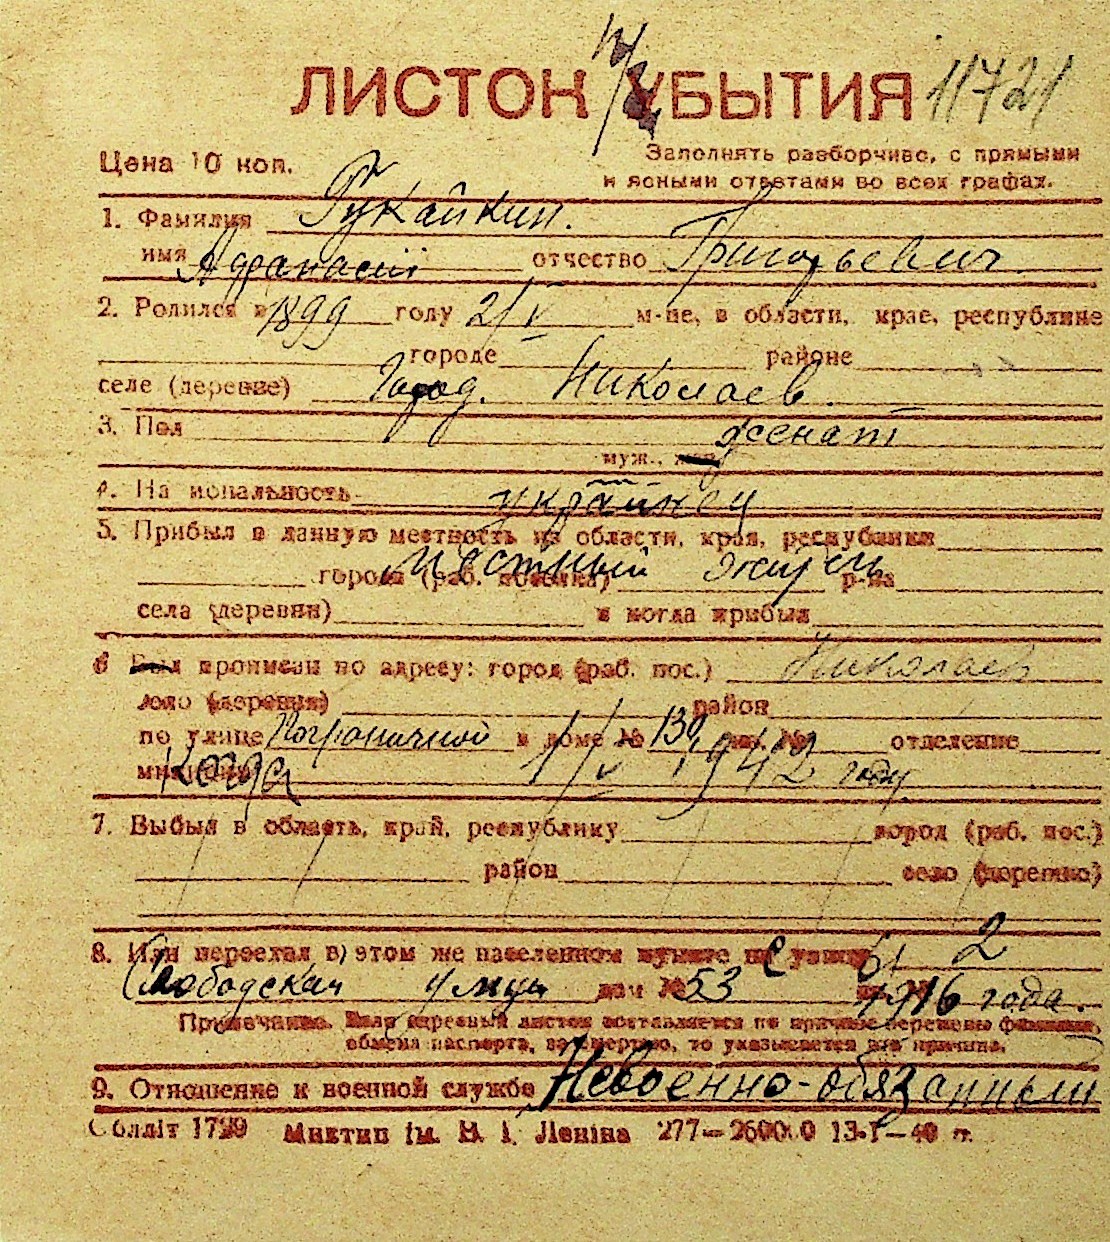 ЛИСТОК УБЫТИЯ 11721
Цена 10 коп.
Заполнять разборчиво, с прямыми
и ясными ответами во всех графах.
1. Фамилия Рукайкин.
имя Афанасий отчество Григорьевич
2. Родился в 1899 году 2/V м-це, в области, крае, республике
городе районе
селе (деревне) Город. Николаев.
3. Пол женат
муж., жен.
4. Национальность украйнец
5. Прибыл в данную местность из области, края, республики
местный житель
города (раб. поселка) р-на
села (деревни) и когда прибыл
6 Был прописан по адресу: город (раб. пос.) Николаев
село (деревня) район
по улице Пограничной в доме № 130 кв. № отделение
милиции Когда 1/V 1942 году
7. Выбыл в область, край, республику город (раб. пос.)
район село (деревню)
8. Или переехал в этом же населенном пункте на улицу с 2
Слободская улица дом № 53 1916 года.
Примечание. Если адресный листок составляется по причине перемены фамилии,
обмена паспорта, за смертью, то указывается эта причина.
9. Отношение к военной службе Невоенно-обязанный
Облліт 1799 Миктип ім. В. І. Леніна 277—260000 13-I—40 г.